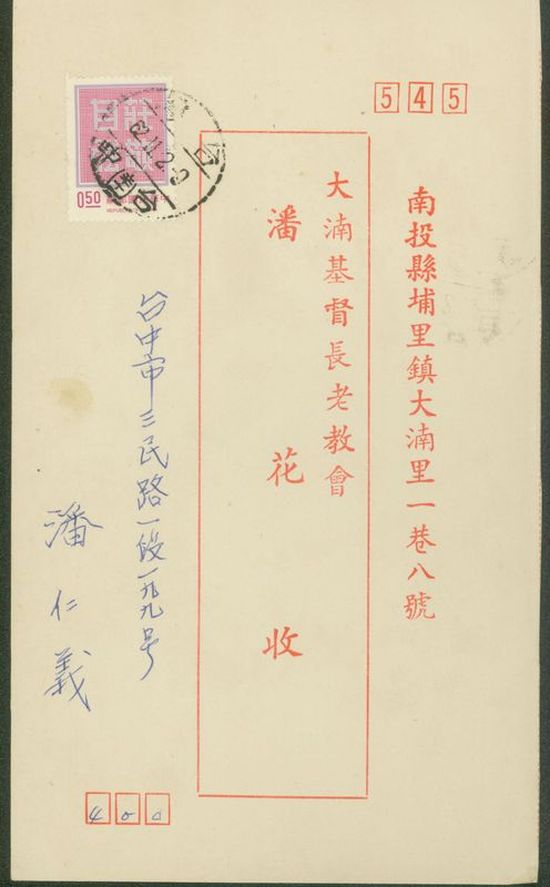 545
南投縣埔里鎮大湳里一巷八號
大湳基督長老教會
潘花 收
莊敬
自強
0.50
台中市三民路一段一九九号
潘仁義
400